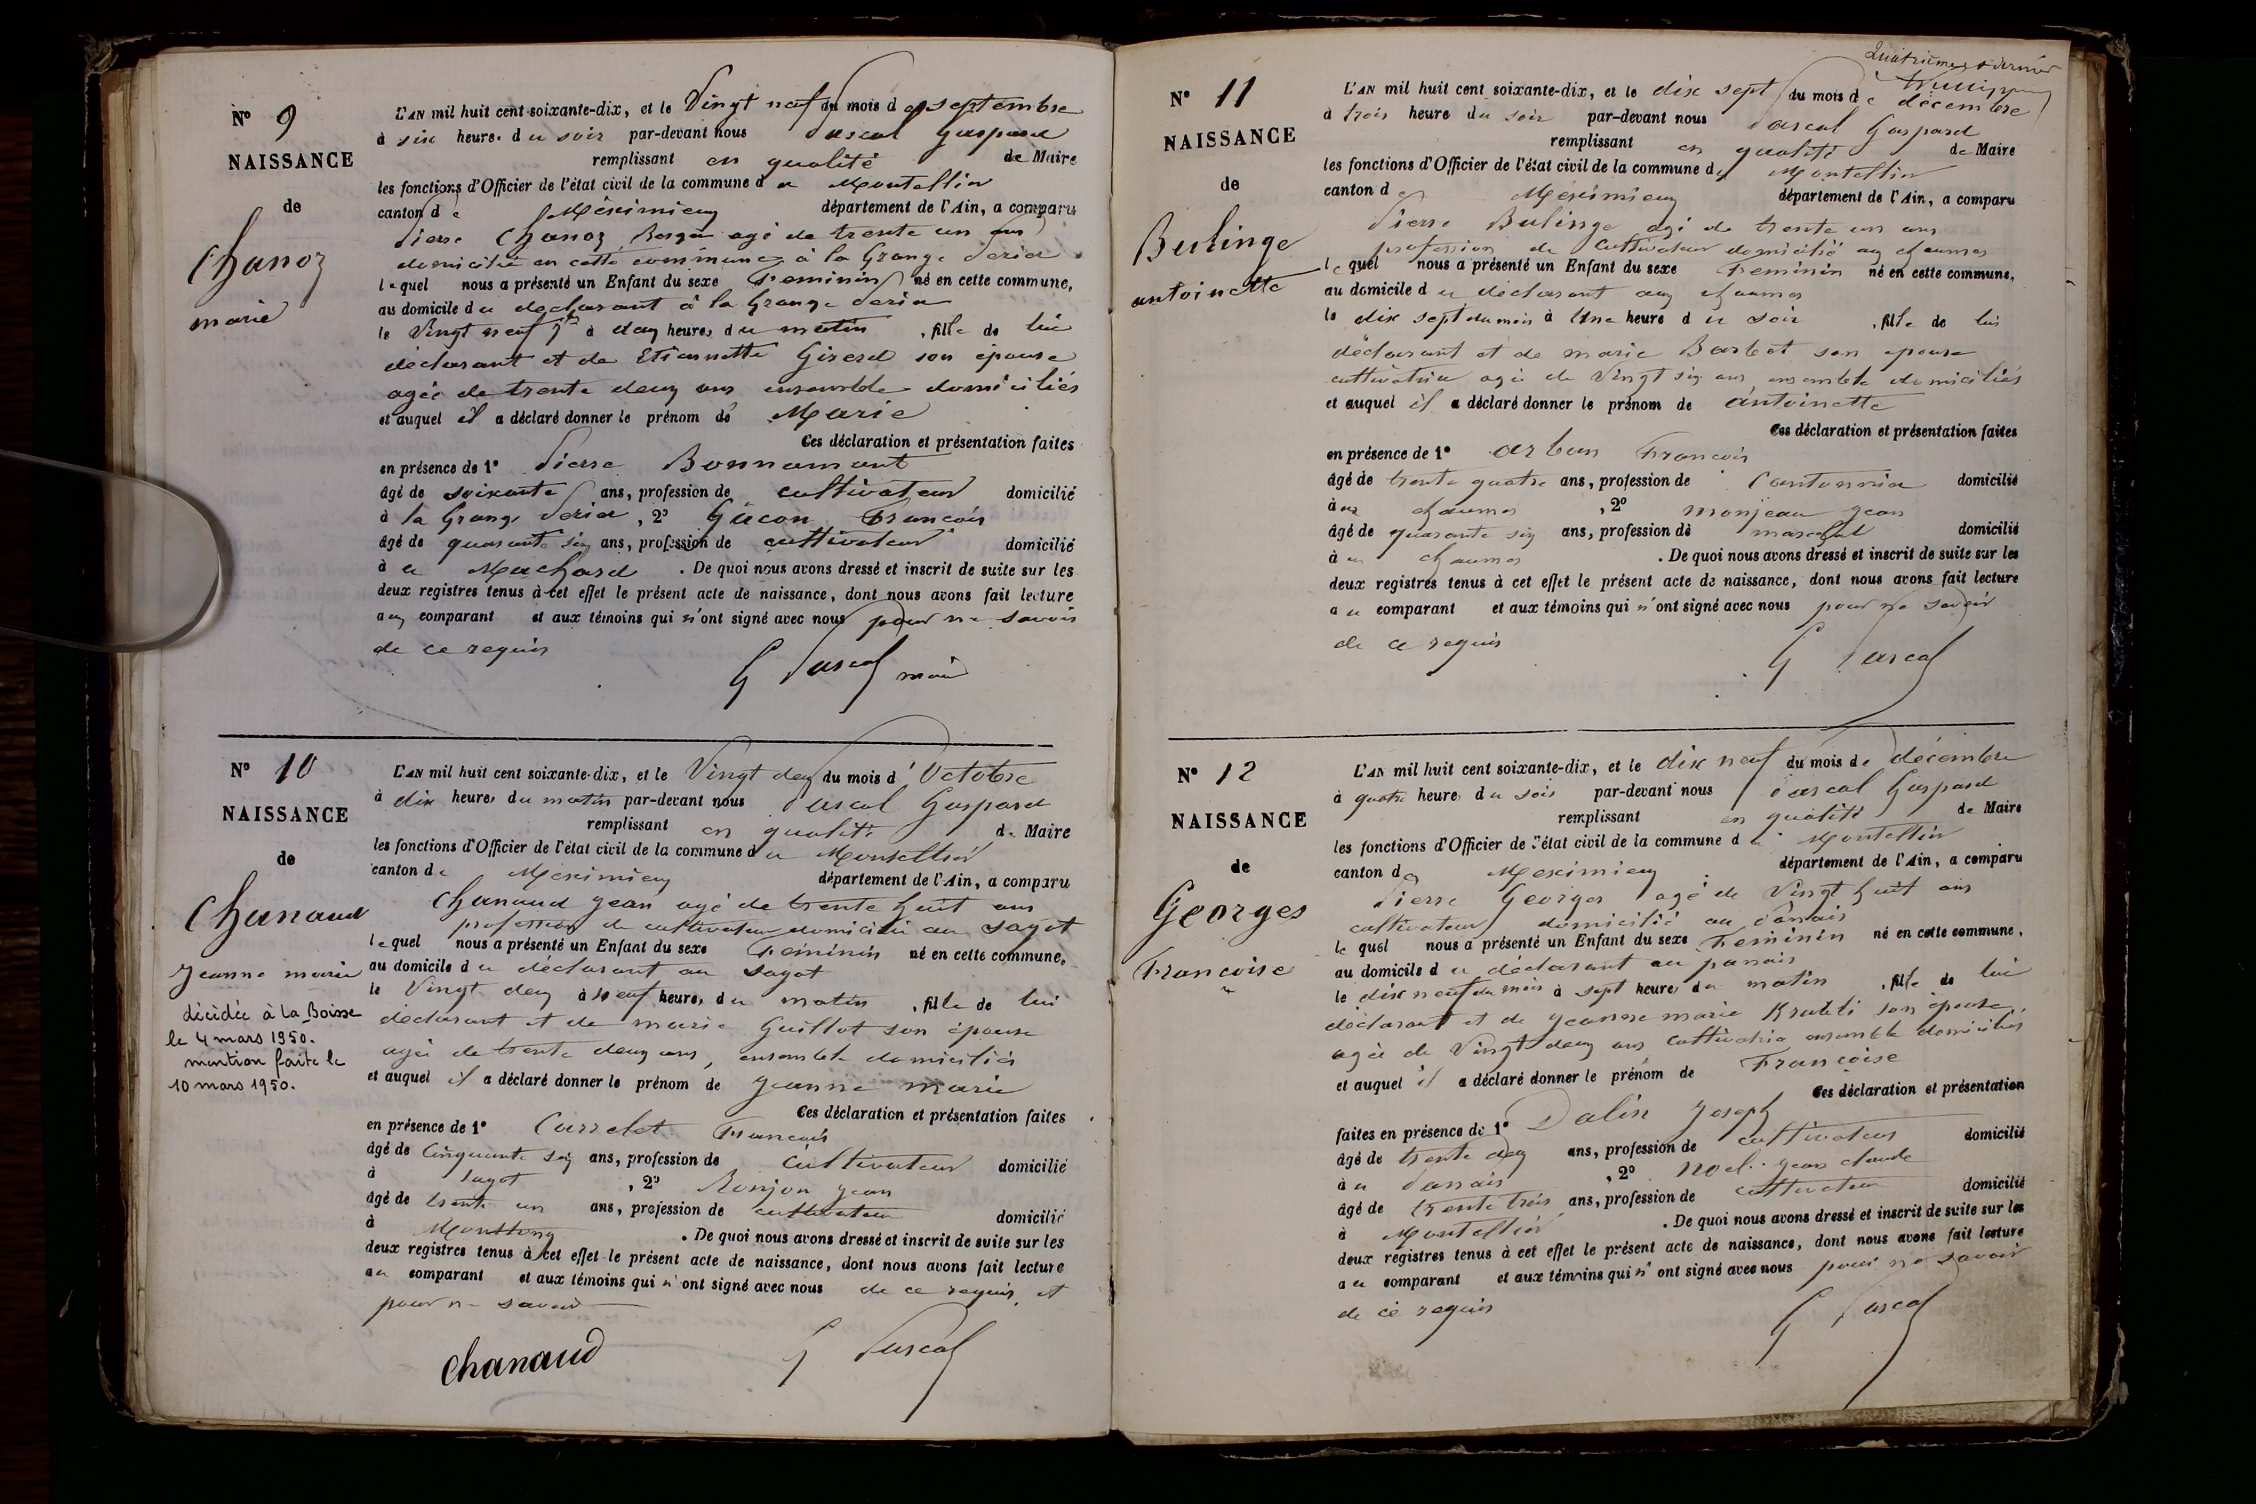 N° 9
NAISSANCE
de
Chanoz
marie
L'AN mil huit cent soixante-dix, et le Vingt neuf du mois d septembre
à six heures du soir par-devant nous Pascal Gaspard
remplissant en qualité de Maire
les fonctions d'Officier de l'état civil de la commune de Montellier
canton de Méximieux département de l'Ain, a comparu
Pierre Chanoz Berger agé de trente un ans
domicilié en cette commune à la Grange Peria
lequel nous a présenté un Enfant du sexe Feminin né en cette commune,
au domicile du declarant à la Grange Peria
le Vingt neuf 7bre à deux heures du matin, fille de lui
déclarant et de Etiennette Girerd son épouse
agée de trente deux ans ensemble domiciliés
et auquel il a déclaré donner le prénom de Marie
Ces déclaration et présentation faites
en présence de 1° Pierre Bonnamant
âgé de soixante ans, profession de cultivateur domicilié
à la Grange Peria, 2° Gacon François
âgé de quarante six ans, profession de cultivateur domicilié
à u Machard. De quoi nous avons dressé et inscrit de suite sur les
deux registres tenus à cet effet le présent acte de naissance, dont nous avons fait lecture
aux comparant et aux témoins qui n'ont signé avec nous pour ne savoir
de ce requis
G Pascal maire
N° 10
NAISSANCE
de
Chanaud
Jeanne marie
décidée à La Boisse
le 4 mars 1950.
mention faite le
10 mars 1950.
L'AN mil huit cent soixante-dix, et le Vingt deux du mois d'Octobre
à dix heures du matin par-devant nous Pascal Gaspard
remplissant en qualité de Maire
les fonctions d'Officier de l'état civil de la commune du Montellier
canton de Meximieux département de l'Ain, a comparu
Chanaud Jean agé de trente huit ans
profession de cultivateur domicilié au Sagot
lequel nous a présenté un Enfant du sexe Feminin né en cette commune,
au domicile du déclarant au Sagot
le Vingt deux à neuf heures du matin, fille de lui
déclarant et de marie Guillot son épouse
agée de trente deux ans, ensemble domiciliés
et auquel il a déclaré donner le prénom de Jeanne marie
Ces déclaration et présentation faites
en présence de 1° Carrelet François
âgé de Cinquante six ans, profession de cultivateur domicilié
à Sagot, 2° Ronjon Jean
âgé de trente un ans, profession de cultivateur domicilié
à. De quoi nous avons dressé et inscrit de suite sur les
deux registres tenus à cet effet le présent acte de naissance, dont nous avons fait lecture
au comparant et aux témoins qui n'ont signé avec nous de ce requis et
pour ne savoir
Chanaud G Pascal
Quatrième & dernier
N° 11
NAISSANCE
de
Bulinge
antoinette
L'AN mil huit cent soixante-dix, et le dix sept du mois de décembre
à trois heure du soir par-devant nous Pascal Gaspard
remplissant en qualité de Maire
les fonctions d'Officier de l'état civil de la commune du Montellier
canton de Méximieux département de l'Ain, a comparu
Pierre Bulinge agé de trente un ans
profession de Cultivateur domicilié aux chaumes
lequel nous a présenté un Enfant du sexe Feminin né en cette commune,
au domicile du déclarant aux chaumes
le dix sept du mois à Une heure du soir, fille de lui
déclarant et de marie Barbet son epouse
cultivatrice agée de Vingt six ans, ensemble domiciliés
et auquel il a déclaré donner le prénom de antoinette
Ces déclaration et présentation faites
en présence de 1° Arban François
âgé de trente quatre ans, profession de Cantonnier domicilié
aux chaumes, 2° monjean Jean
âgé de quarante six ans, profession de marechal domicilié
à ux chaumes. De quoi nous avons dressé et inscrit de suite sur les
deux registres tenus à cet effet le présent acte de naissance, dont nous avons fait lecture
au comparant et aux témoins qui n'ont signé avec nous pour ne savoir
de ce requis
G Pascal
N° 12
NAISSANCE
de
Georges
Francoise
L'AN mil huit cent soixante-dix, et le dix neuf du mois de décembre
à quatre heures du soir par-devant nous Pascal Gaspard
remplissant en qualité de Maire
les fonctions d'Officier de l'état civil de la commune de Montellier
canton de Meximieux département de l'Ain, a comparu
Pierre Georges agé de Vingt huit ans
cultivateur domicilié au Panais
lequel nous a présenté un Enfant du sexe Feminin né en cette commune,
au domicile du déclarant au panais
le dix neuf du mois à sept heures du matin, fille de lui
déclarant et de Jeanne marie son épouse
agée de Vingt deux ans cultivatrice ensemble domiciliés
et auquel il a déclaré donner le prénom de Françoise
Ces déclaration et présentation
faites en présence de 1° Dalin Joseph
âgé de trente deux ans, profession de cultivateur domicilié
à u Panais, 2° Noel Jean claude
âgé de trente trois ans, profession de cultivateur domicilié
à Montellier. De quoi nous avons dressé et inscrit de suite sur les
deux registres tenus à cet effet le présent acte de naissance, dont nous avons fait lecture
au comparant et aux témoins qui n'ont signé avec nous pour ne savoir
de ce requis
G Pascal